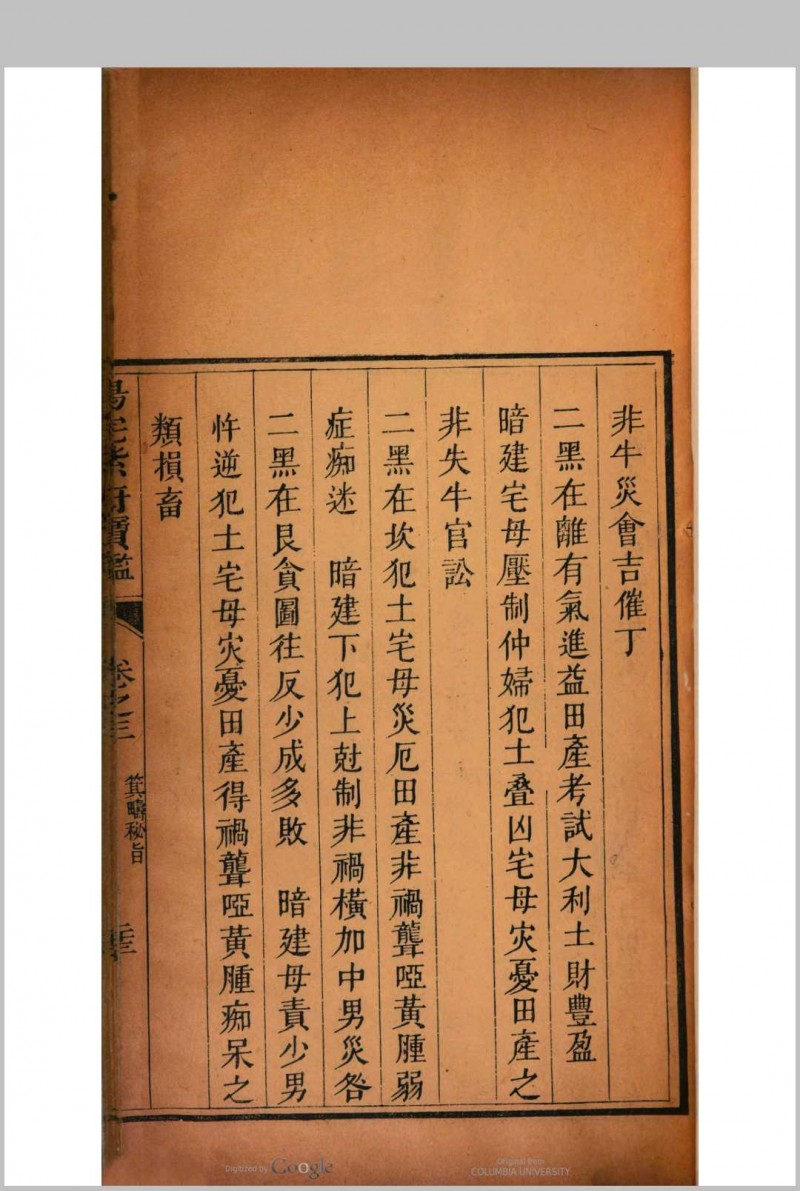 非牛災會吉催丁
二黑在離有氣進益田產考試大利土財豐盈
暗建宅母壓制仲婦犯土叠凶宅母灾憂田產之
非失牛官訟
二黑在坎犯土宅母災厄田產非禍聾啞黃腫弱
症痴迷　暗建下犯上尅制非禍橫加中男災咎
二黑在艮貪圖往反少成多敗　暗建母責少男
忤逆犯土宅母灾憂田產得禍聾啞黃腫痴呆之
類損畜
陽宅紫府寶鑑
卷之三
箕疇秘旨
Digitized by Google
Original from
COLUMBIA UNIVERSITY